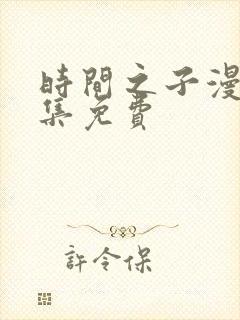 時間之子漫
集免費
許令保